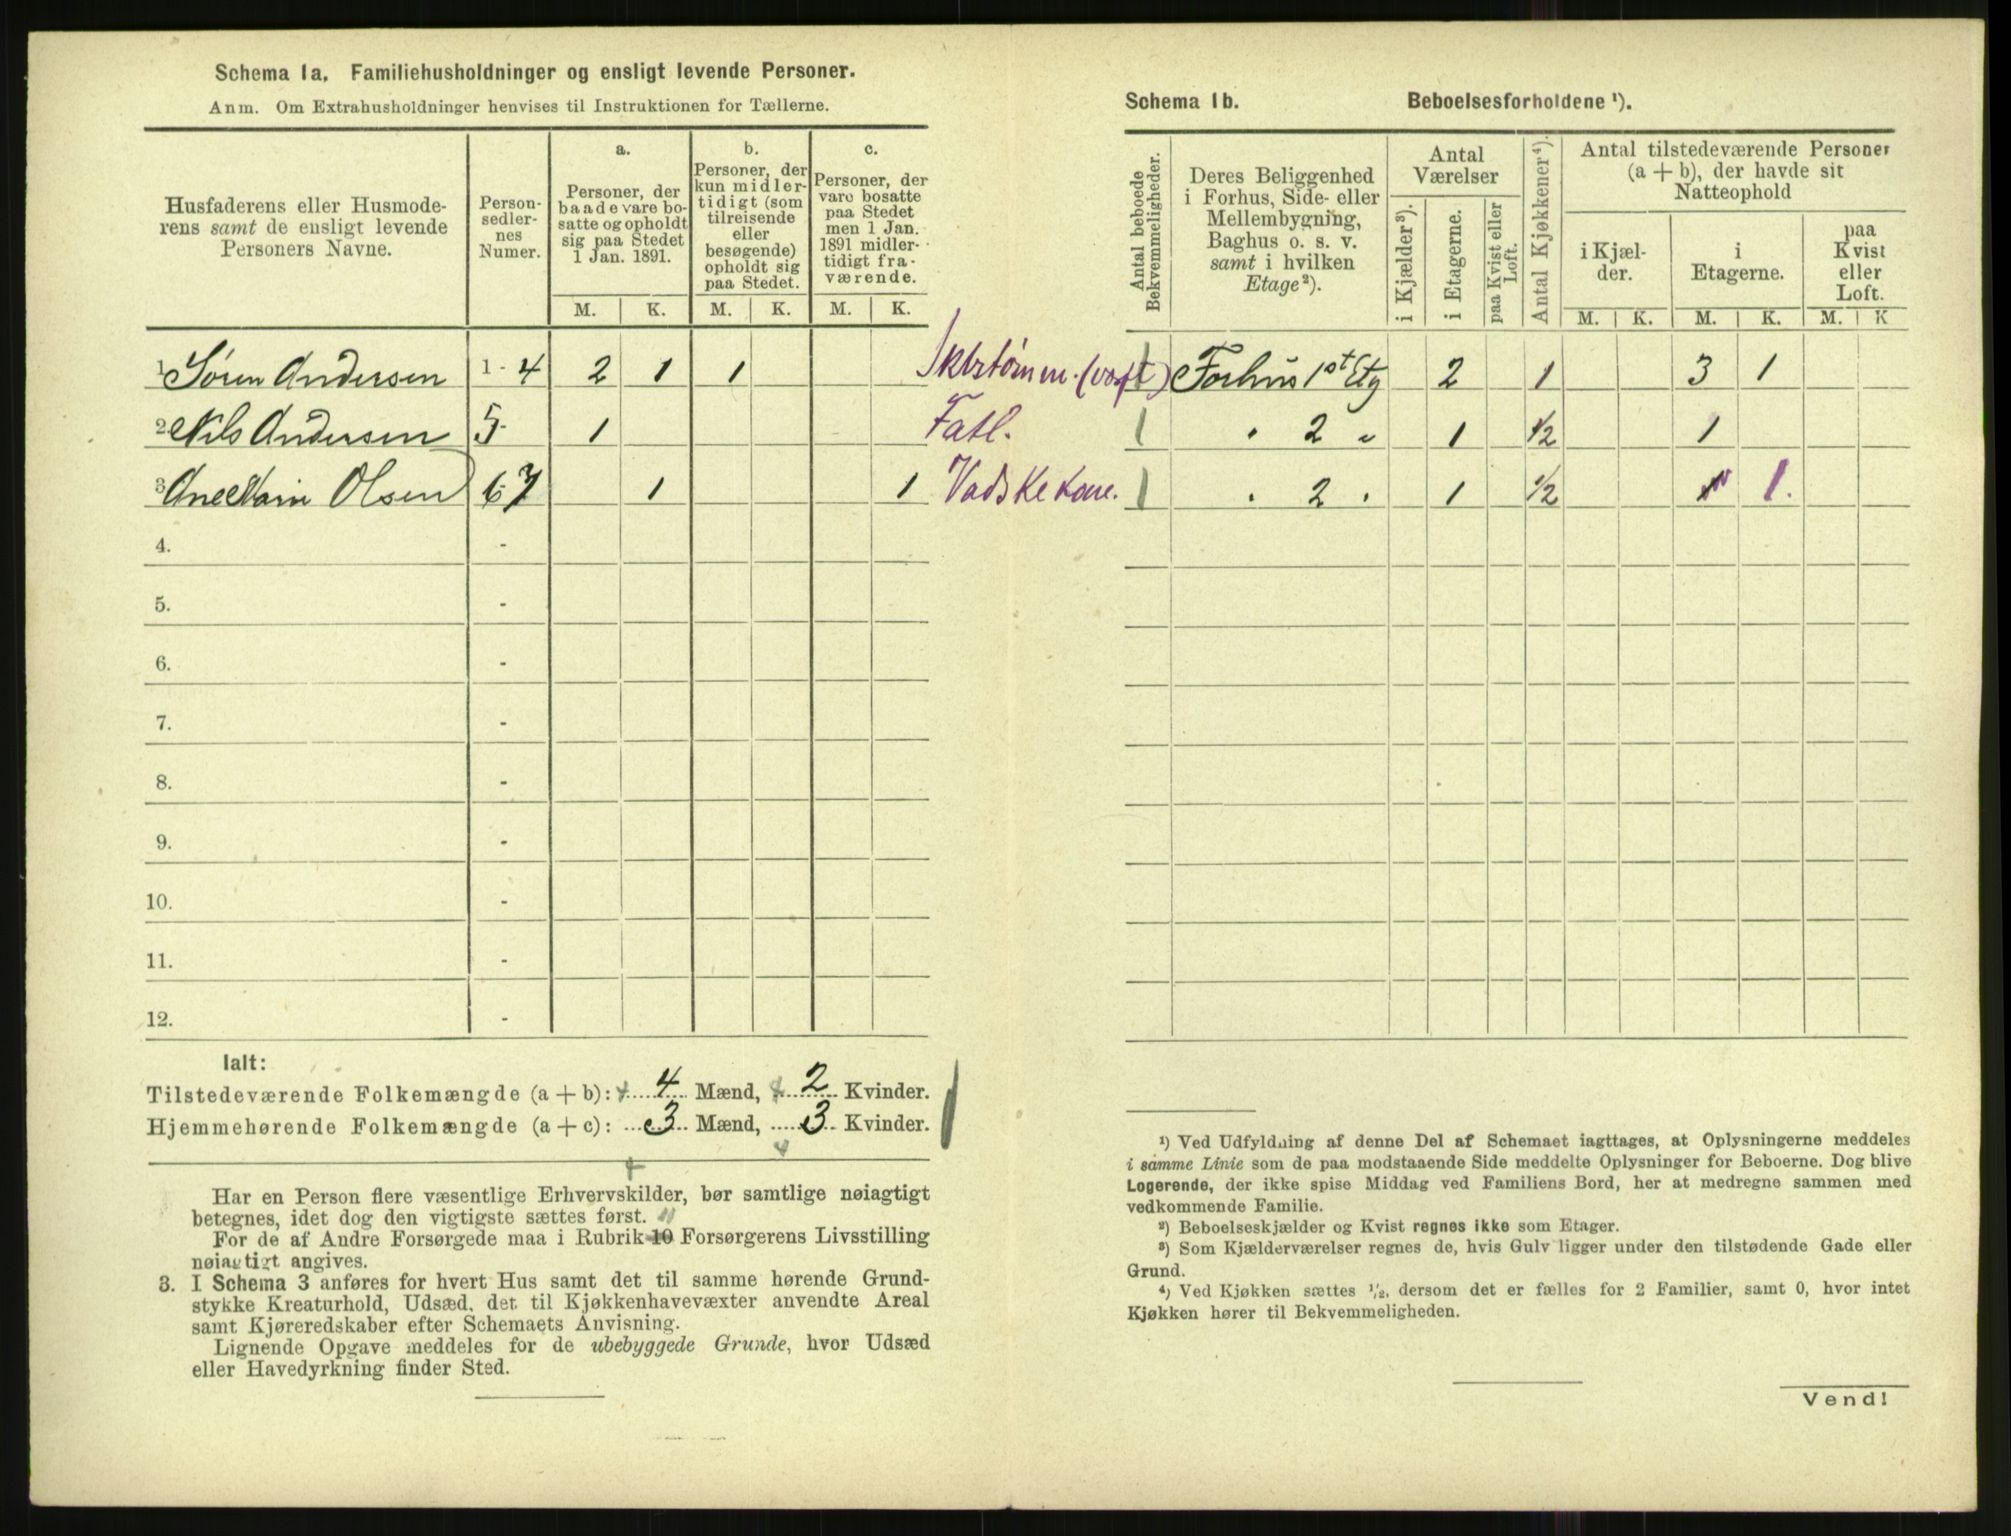 Schema 1a. Familiehusholdninger og ensligt levende Personer.
Anm. Om Extrahusholdninger henvises til Instruktionen for Tællerne.
Husfaderens eller Husmode-
rens samt de ensligt levende
Personers Navne.
Person-
sedler-
nes
Numer.
a.
Personer, der
baade vare bo-
satte og opholdt
sig paa Stedet
1 Jan. 1891.
b.
Personer, der
kun midler-
tidigt (som
tilreisende
eller
besøgende)
opholdt sig
paa Stedet.
c.
Personer, der
vare bosatte
paa Stedet
men 1 Jan.
1891 midler-
tidigt fra-
værende.
M. K. M. K. M. K.
1 Søren Andersen 1 - 4 2 1 1
2 Nils Andersen 5- 1
3 Ane Marie Olsen 6-7 1 1
4. -
5. -
6. -
7. -
8. -
9. -
10. -
11. -
12. -
Ialt:
Tilstedeværende Folkemængde (a + b): 4 Mænd, 2 Kvinder.
Hjemmehørende Folkemængde (a + c): 3 Mænd, 3 Kvinder.
Har en Person flere væsentlige Erhvervskilder, bør samtlige nøiagtigt
betegnes, idet dog den vigtigste sættes først.
For de af Andre Forsørgede maa i Rubrik 10 Forsørgerens Livsstilling
nøiagtigt angives.
3. I Schema 3 anføres for hvert Hus samt det til samme hørende Grund-
stykke Kreaturhold, Udsæd, det til Kjøkkenhavevæxter anvendte Areal
samt Kjøreredskaber efter Schemaets Anvisning.
Lignende Opgave meddeles for de ubebyggede Grunde, hvor Udsæd
eller Havedyrkning finder Sted.
Schema 1b. Beboelsesforholdene ¹).
Antal beboede
Bekvemmeligheder.
Deres Beliggenhed
i Forhus, Side- eller
Mellembygning,
Baghus o. s. v.
samt i hvilken
Etage²).
Antal
Værelser
i Kjælder³).
i Etagerne.
paa Kvist eller
Loft.
Antal Kjøkkener⁴).
Antal tilstedeværende Personer
(a + b), der havde sit
Natteophold
i Kjæl-
der.
i
Etagerne.
paa
Kvist
eller
Loft.
M. K. M. K. M. K
1 Forhus 1st Etg 2 1 3 1
Fatl. 1 " 2 " 1 1/2 1
Vadskekone. 1 " 2 " 1 1/2 1.
¹) Ved Udfyldning af denne Del af Schemaet iagttages, at Oplysningerne meddeles
i samme Linie som de paa modstaaende Side meddelte Oplysninger for Beboerne. Dog blive
Logerende, der ikke spise Middag ved Familiens Bord, her at medregne sammen med
vedkommende Familie.
²) Beboelseskjælder og Kvist regnes ikke som Etager.
³) Som Kjælderværelser regnes de, hvis Gulv ligger under den tilstødende Gade eller
Grund.
⁴) Ved Kjøkken sættes ½, dersom det er fælles for 2 Familier, samt 0, hvor intet
Kjøkken hører til Bekvemmeligheden.
Vend!